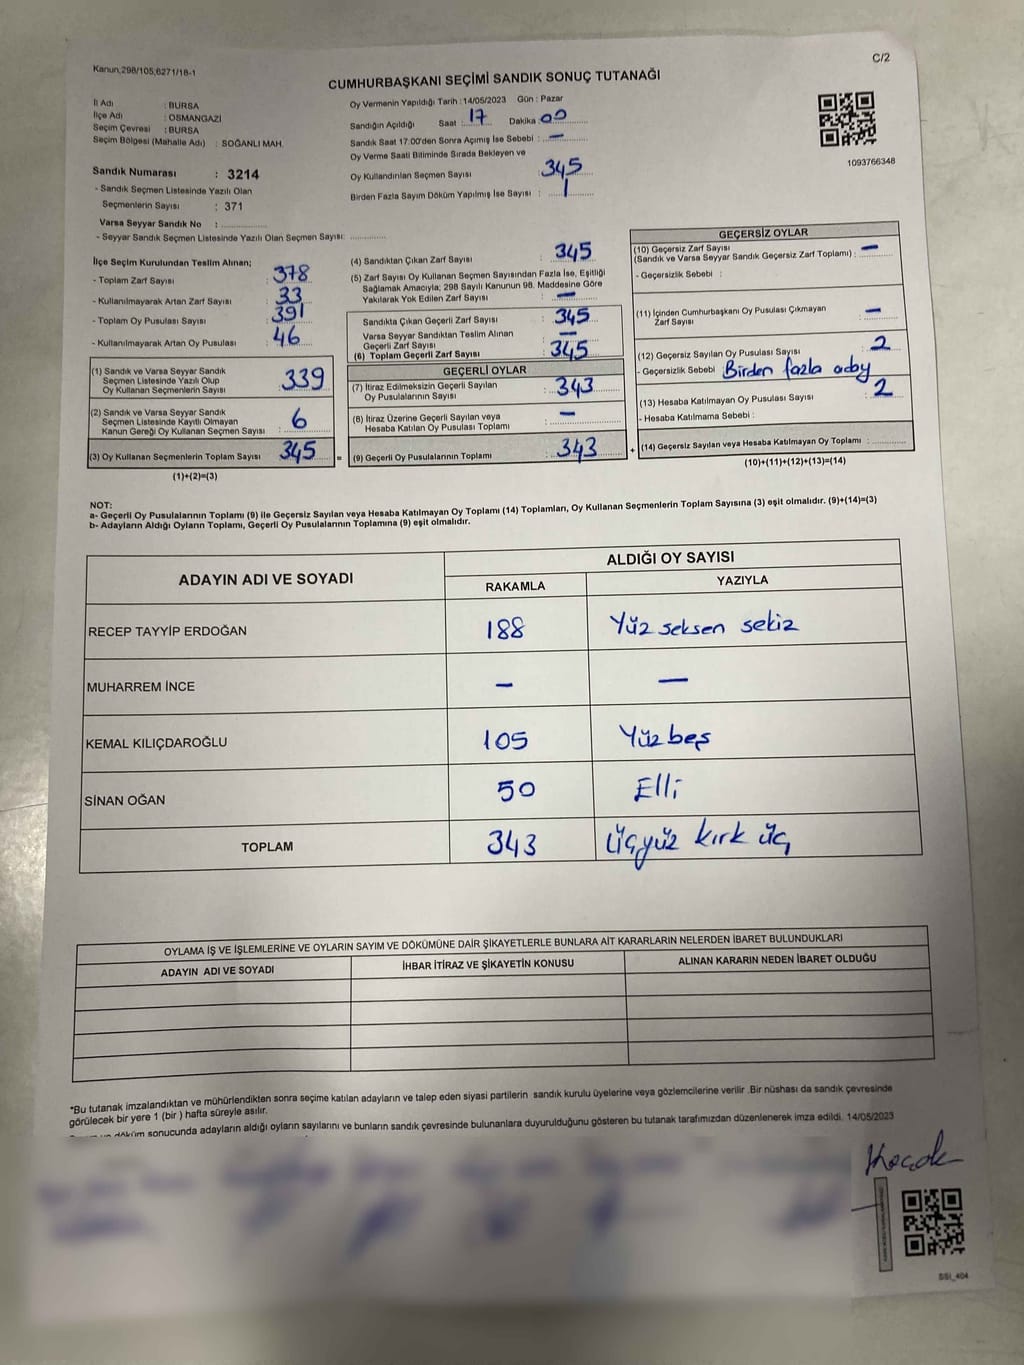 Kanun,298/105;6271/18-1
C/2
CUMHURBAŞKANI SEÇİMİ SANDIK SONUÇ TUTANAĞI
İl Adı : BURSA
İlçe Adı : OSMANGAZİ
Seçim Çevresi : BURSA
Seçim Bölgesi (Mahalle Adı) : SOĞANLI MAH.
Oy Vermenin Yapıldığı Tarih : 14/05/2023 Gün : Pazar
Sandığın Açıldığı Saat : 17 Dakika : 00
Sandık Saat 17:00'den Sonra Açımış İse Sebebi : —
Oy Verme Saati Bitiminde Sırada Bekleyen ve
Oy Kullandırılan Seçmen Sayısı 345
Birden Fazla Sayım Döküm Yapılmış İse Sayısı : 1
1093766348
Sandık Numarası : 3214
- Sandık Seçmen Listesinde Yazılı Olan
Seçmenlerin Sayısı : 371
Varsa Seyyar Sandık No :
- Seyyar Sandık Seçmen Listesinde Yazılı Olan Seçmen Sayısı:
İlçe Seçim Kurulundan Teslim Alınan;
- Toplam Zarf Sayısı : 378
- Kullanılmayarak Artan Zarf Sayısı : 33
- Toplam Oy Pusulası Sayısı : 391
- Kullanılmayarak Artan Oy Pusulası : 46
(1) Sandık ve Varsa Seyyar Sandık
Seçmen Listesinde Yazılı Olup
Oy Kullanan Seçmenlerin Sayısı : 339
(2) Sandık ve Varsa Seyyar Sandık
Seçmen Listesinde Kayıtlı Olmayan
Kanun Gereği Oy Kullanan Seçmen Sayısı : 6
(3) Oy Kullanan Seçmenlerin Toplam Sayısı : 345
(1)+(2)=(3)
(4) Sandıktan Çıkan Zarf Sayısı : 345
(5) Zarf Sayısı Oy Kullanan Seçmen Sayısından Fazla İse, Eşitliği
Sağlamak Amacıyla; 298 Sayılı Kanunun 98. Maddesine Göre
Yakılarak Yok Edilen Zarf Sayısı : —
Sandıkta Çıkan Geçerli Zarf Sayısı : 345
Varsa Seyyar Sandıktan Teslim Alınan
Geçerli Zarf Sayısı : —
(6) Toplam Geçerli Zarf Sayısı : 345
GEÇERLİ OYLAR
(7) İtiraz Edilmeksizin Geçerli Sayılan
Oy Pusulalarının Sayısı : 343
(8) İtiraz Üzerine Geçerli Sayılan veya
Hesaba Katılan Oy Pusulası Toplamı : —
= (9) Geçerli Oy Pusulalarının Toplamı : 343
GEÇERSİZ OYLAR
(10) Geçersiz Zarf Sayısı
(Sandık ve Varsa Seyyar Sandık Geçersiz Zarf Toplamı) : —
- Geçersizlik Sebebi :
(11) İçinden Cumhurbaşkanı Oy Pusulası Çıkmayan
Zarf Sayısı : —
(12) Geçersiz Sayılan Oy Pusulası Sayısı : 2
- Geçersizlik Sebebi : Birden fazla aday
(13) Hesaba Katılmayan Oy Pusulası Sayısı : 2
- Hesaba Katılmama Sebebi :
+ (14) Geçersiz Sayılan veya Hesaba Katılmayan Oy Toplamı :
(10)+(11)+(12)+(13)=(14)
NOT:
a- Geçerli Oy Pusulalarının Toplamı (9) ile Geçersiz Sayılan veya Hesaba Katılmayan Oy Toplamı (14) Toplamları, Oy Kullanan Seçmenlerin Toplam Sayısına (3) eşit olmalıdır. (9)+(14)=(3)
b- Adayların Aldığı Oyların Toplamı, Geçerli Oy Pusulalarının Toplamına (9) eşit olmalıdır.
ADAYIN ADI VE SOYADI
ALDIĞI OY SAYISI
RAKAMLA YAZIYLA
RECEP TAYYİP ERDOĞAN 188 Yüz seksen sekiz
MUHARREM İNCE — —
KEMAL KILIÇDAROĞLU 105 Yüz beş
SİNAN OĞAN 50 Elli
TOPLAM 343 üçyüz kırk üç
OYLAMA İŞ VE İŞLEMLERİNE VE OYLARIN SAYIM VE DÖKÜMÜNE DAİR ŞİKAYETLERLE BUNLARA AİT KARARLARIN NELERDEN İBARET BULUNDUKLARI
ADAYIN ADI VE SOYADI İHBAR İTİRAZ VE ŞİKAYETİN KONUSU ALINAN KARARIN NEDEN İBARET OLDUĞU
*Bu tutanak imzalandıktan ve mühürlendikten sonra seçime katılan adayların ve talep eden siyasi partilerin sandık kurulu üyelerine veya gözlemcilerine verilir .Bir nüshası da sandık çevresinde
görülecek bir yere 1 (bir ) hafta süreyle asılır.
döküm sonucunda adayların aldığı oyların sayılarını ve bunların sandık çevresinde bulunanlara duyurulduğunu gösteren bu tutanak tarafımızdan düzenlenerek imza edildi. 14/05/2023
SSI_404